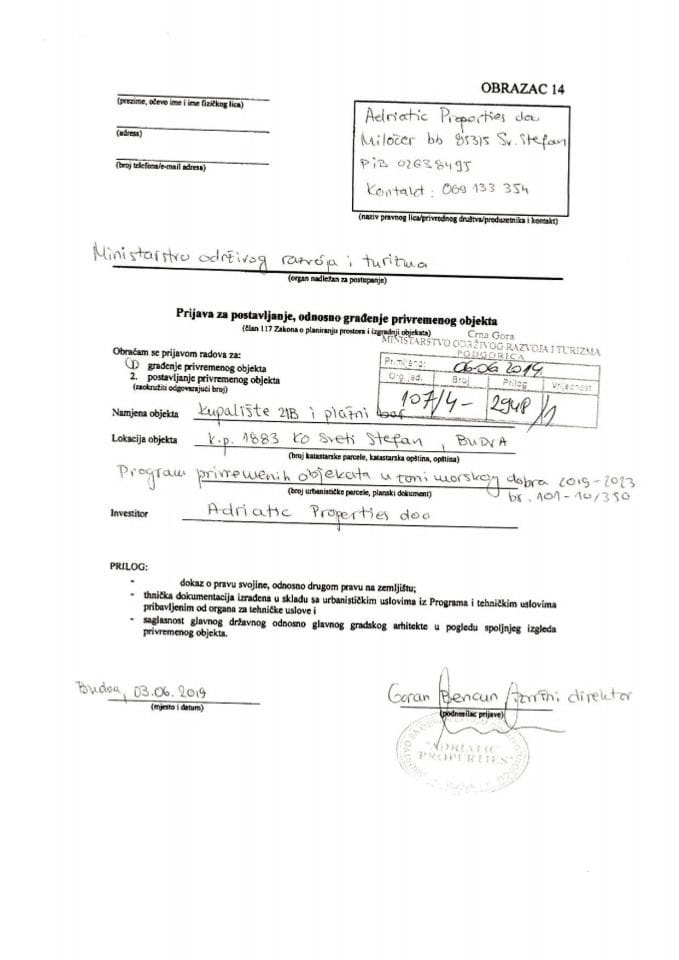 OBRAZAC 14
(prezime, očevo ime i ime fizičkog lica)
(adresa)
(broj telefona/e-mail adresa)
Adriatic Properties doo
Miločer bb 85315 Sv. Stefan
PIB 02638495
Kontakt: 069 133 354
(naziv pravnog lica/privrednog društva/preduzetnika i kontakt)
Ministarstvo održivog razvoja i turizma
(organ nadležan za postupanje)
Prijava za postavljanje, odnosno građenje privremenog objekta
(član 117 Zakona o planiranju prostora i izgradnji objekata)
Crna Gora
MINISTARSTVO ODRŽIVOG RAZVOJA I TURIZMA
PODGORICA
Primljeno: 06.06.2019.
Org. jed. Broj Prilog Vrijednost
107/4- 294P/1
Obraćam se prijavom radova za:
1. građenje privremenog objekta
2. postavljanje privremenog objekta
(zaokružiti odgovarajući broj)
Namjena objekta Kupalište 21B i plažni bar
Lokacija objekta k.p. 1883 KO Sveti Stefan, BUDVA
(broj katastarske parcele, katastarska opština, opština)
Program privremenih objekata u zoni morskog dobra 2019-2023
br. 101-10/350
(broj urbanističke parcele, planski dokument)
Investitor Adriatic Properties doo
PRILOG:
- dokaz o pravu svojine, odnosno drugom pravu na zemljištu;
- thnička dokumentacija izrađena u skladu sa urbanističkim uslovima iz Programa i tehničkim uslovima
pribavljenim od organa za tehničke uslove i
- saglasnost glavnog državnog odnosno glavnog gradskog arhitekte u pogledu spoljnjeg izgleda
privremenog objekta.
Budva, 03.06.2019
(mjesto i datum)
Goran Bencun direktor
(podnosilac prijave)
"ADRIATIC
PROPERTIES"